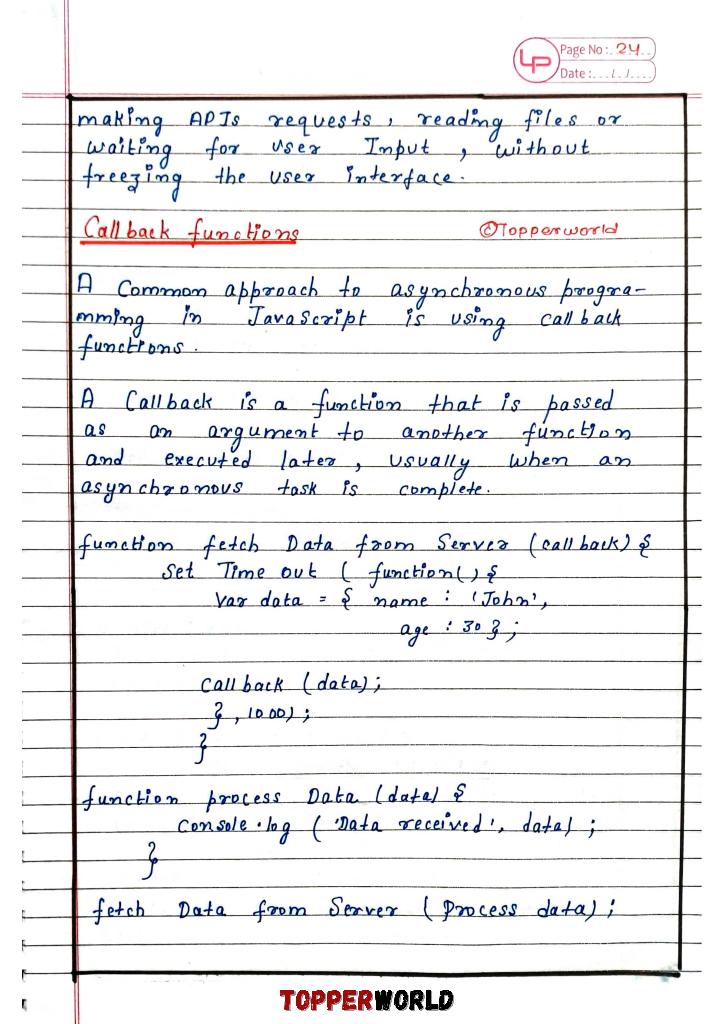 LP Page No : 24
Date : ... / . / ....
making APIs requests, reading files or
waiting for user Input, without
freezing the user interface.
Callback functions ©Topperworld
A Common approach to asynchronous progra-
mming in JavaScript is using callback
functions.
A Callback is a function that is passed
as an argument to another function
and executed later, usually when an
asynchronous task is complete.
function fetch Data from Server (callback) {
Set Time out ( function() {
Var data = { name : 'John',
age : 30 } ;
Callback (data);
} , 1000);
}
function process Data (data) {
Console.log ( 'Data received', data) ;
}
fetch Data from Server ( Process data) ;
TOPPERWORLD